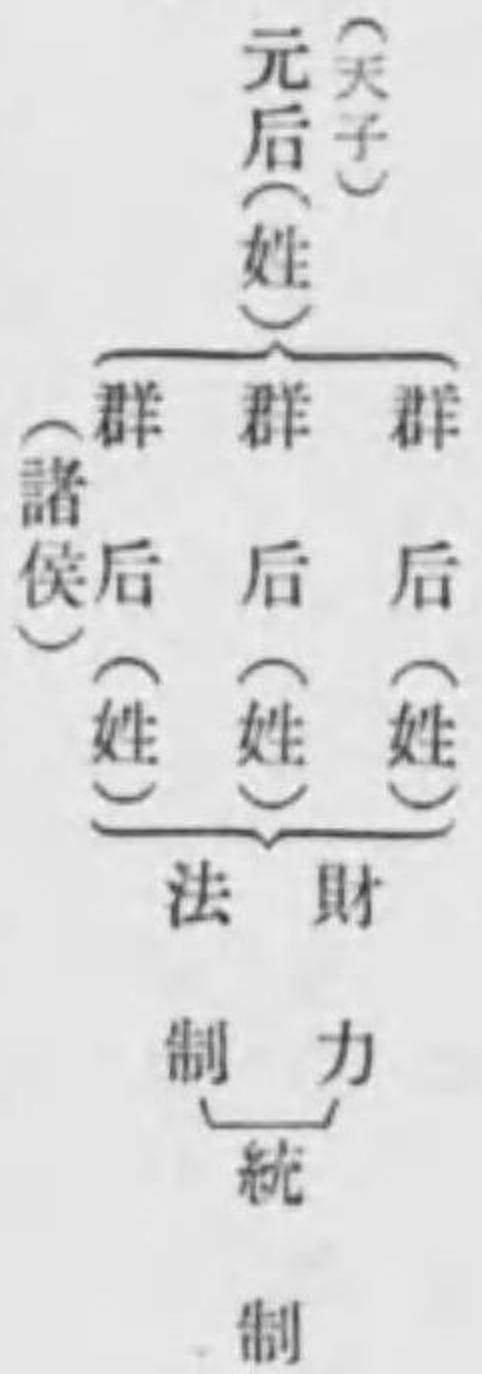 （天子）
元后（姓）
群后（姓）
群后（姓）
群后（姓）
（諸侯）
財力
法制
統制